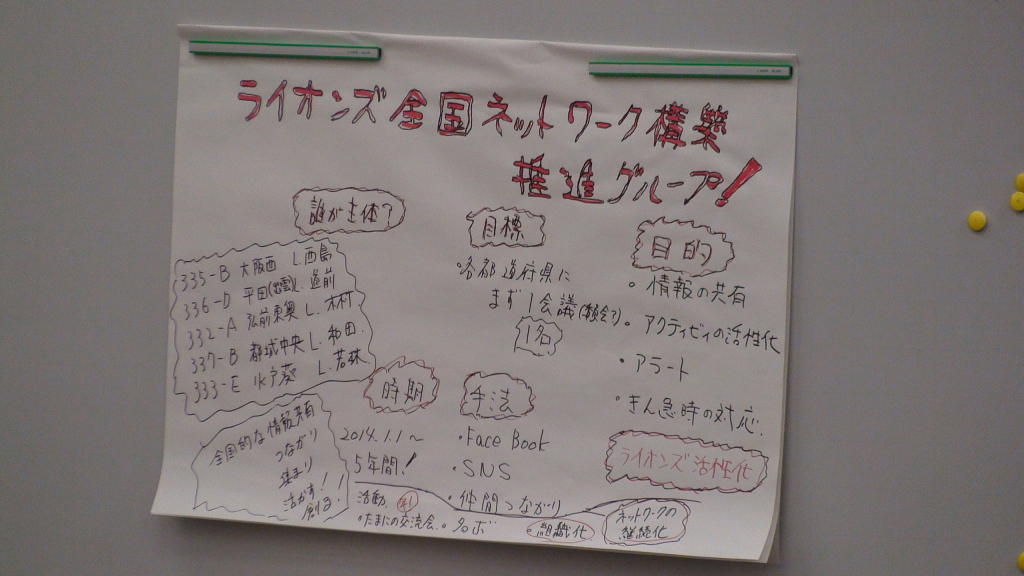 ライオンズ全国ネットワーク構築
推進グループ!
誰が主体?
335-B 大阪西 L.西島
336-D 平田(出雲)L.道前
332-A 弘前東奥 L.木村
337-B 都城中央 L.和田.
333-E 水戸葵 L.若林
全国的な情報共有
つながり
集まり
活かす!
創る!
目標
・各都道府県に
まず1会議
1名
目的
・情報の共有
・アクティビィの活性化
・アラート
・きん急時の対応.
ライオンズ活性化
時期
2014.1.1~
5年間!
手法
・Face Book
・SNS
・仲間つながり
・組織化
活動
・たまにの交流会.
・クロボ
ネットワークの
継続化